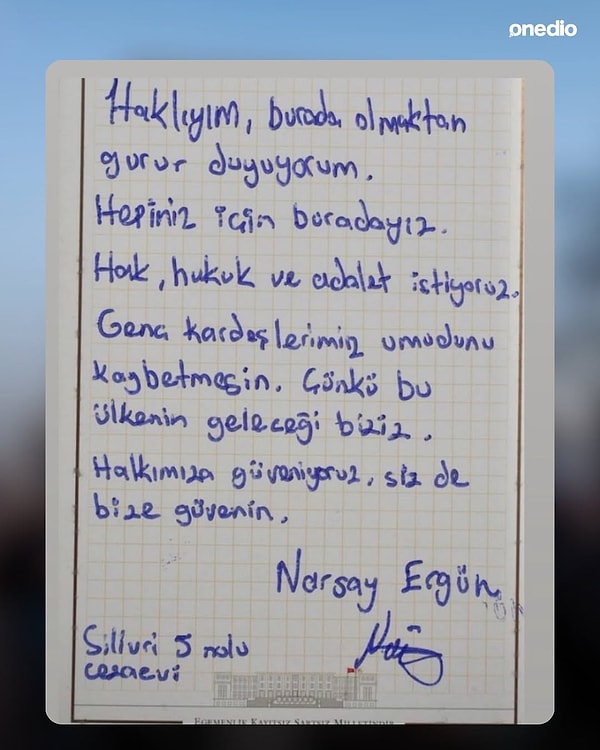 onedio
Haklıyım, burada olmaktan
gurur duyuyorum.
Hepiniz için buradayız.
Hak, hukuk ve adalet istiyoruz.
Genç kardeşlerimiz umudunu
kaybetmesin. Çünkü bu
ülkenin geleceği biziz.
Halkımıza güveniyoruz, siz de
bize güvenin.
Narsay Ergün
Silivri 5 nolu
cezaevi
EGEMENLİK KAYITSIZ ŞARTSIZ MİLLETİNDİR